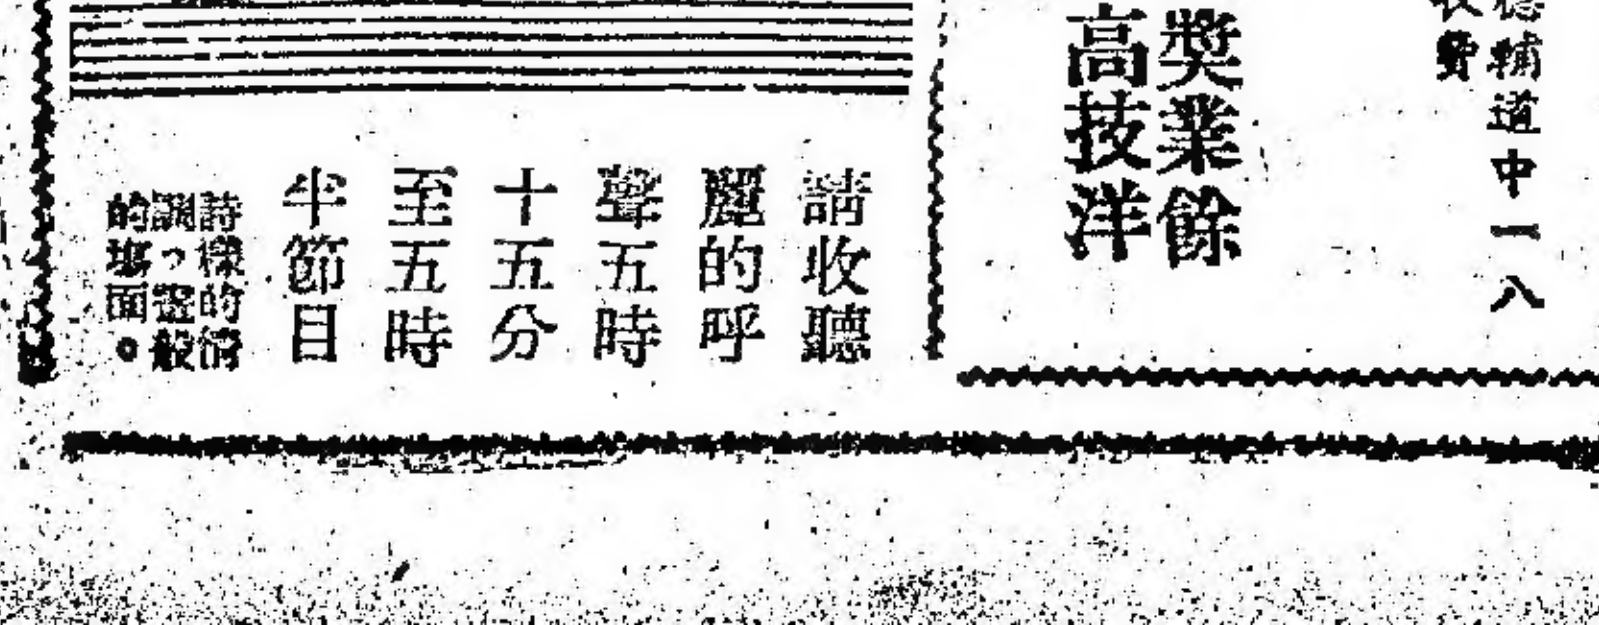 德輔道中一八
收費
獎業餘
高技洋
請收聽
麗的呼
聲五時
十五分
至五時
半節目
詩樣的情
調，霧般
的塲面。